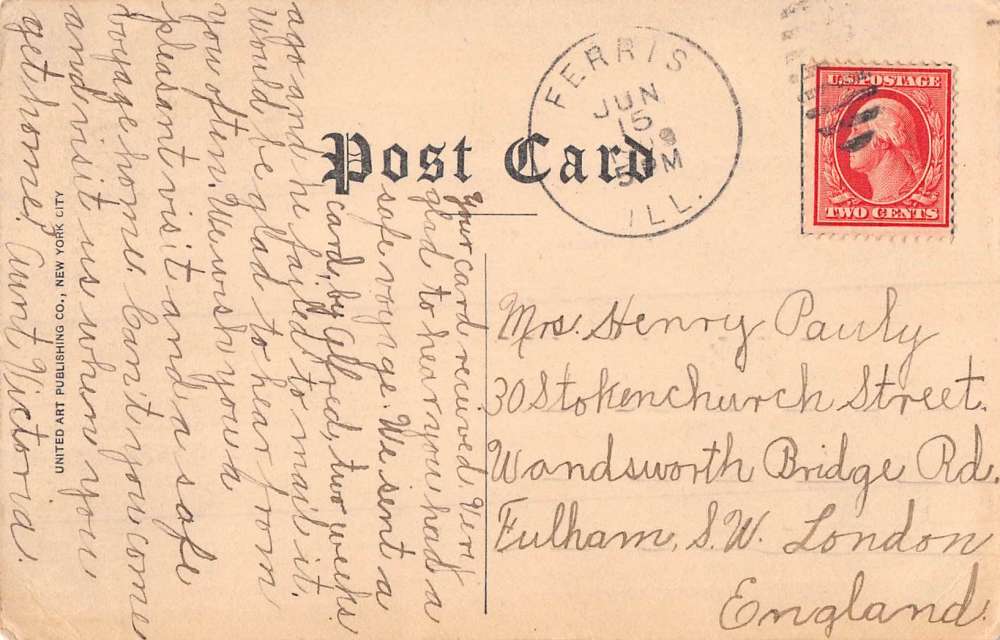 Post Card
FERRIS
JUN
15
5 PM
ILL.
U.S. POSTAGE
TWO CENTS
Your card received. Very
glad to hear you had a
safe voyage. We sent a
card, by Alfred, two weeks
ago and he failed to mail it.
Would be glad to hear from
you often. We wish you a
pleasant visit and a safe
voyage home. Can't you come
and visit us when you
get home? Aunt Victoria.
Mrs. Henry Pauly
30 Stokenchurch Street.
Wandsworth Bridge Rd.
Fulham, S.W. London
England.
UNITED ART PUBLISHING CO., NEW YORK CITY